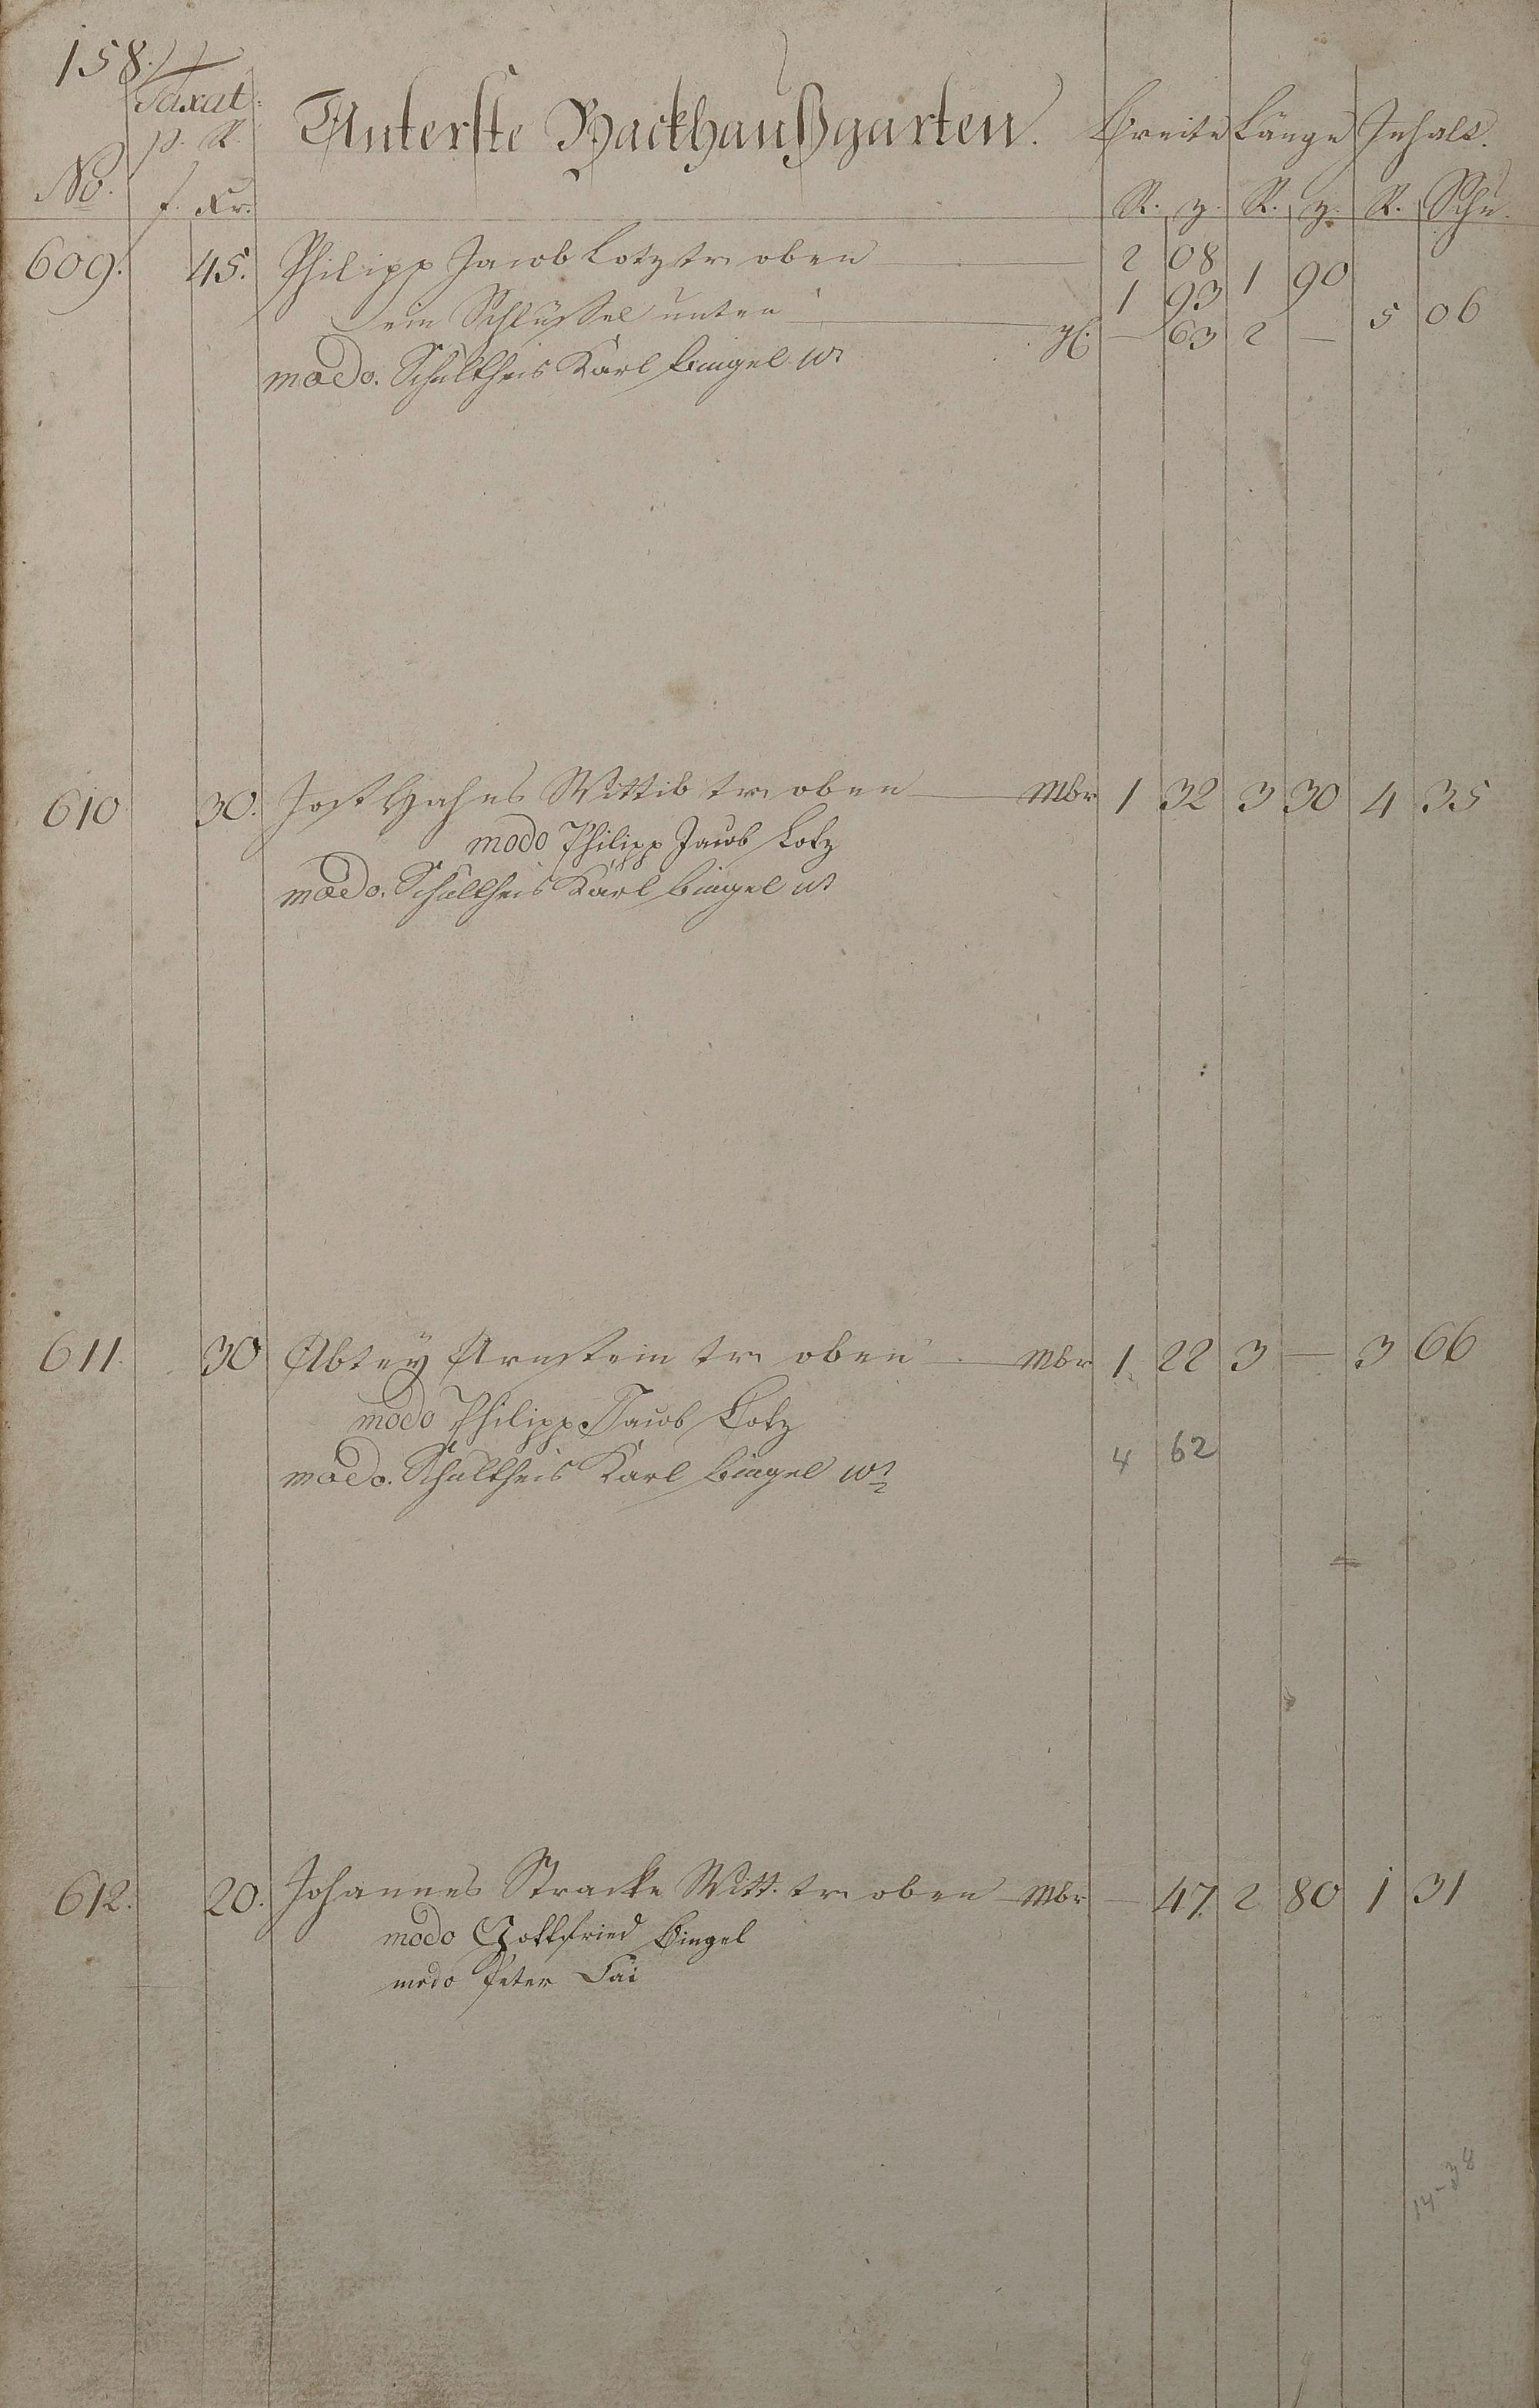 158.
Taxat:
p. R.
Unterste Backhaußgarten. Breite Länge Inhalt.
No. f. Xr. R. z. R. z. R. Schu.
609. 45. Philipp Jacob Lotz tr. oben 2 08 1 90
ein Schlüssel unten 1 93 5 06
modo. Schultheis Karl Bingel — 63 2 —
610 30. Jost Hahns Wittib tr. oben Mbr 1 32 3 30 4 35
modo Philipp Jacob Lotz
modo. Schultheis Karl Bingel
611. 30 Abtey Arnstein tr. oben Mbr 1 22 3 — 3 66
modo Philipp Jacob Lotz
modo. Schultheis Karl Bingel 4 62
612. 20. Johannes Stracke Witt. tr. oben Mbr — 47. 2 80 1 31
modo Gottfried Bingel
modo Peter
14-38